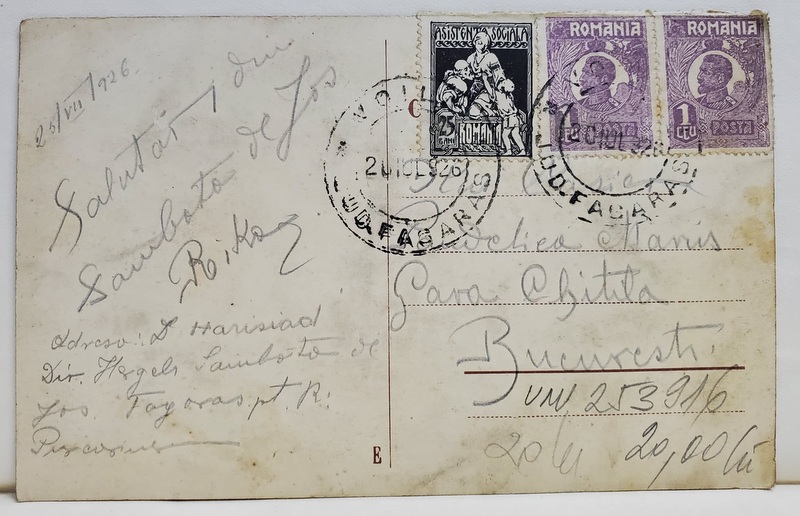 25/VII/926
Salutări din
Sambota de Jos
Rika
Adresa: D Harisiad
Dir. Hergels Sambota de
Jos Fagaras pt. R:
ASISTENȚA SOCIALA
25 BANI
ROMANIA
ROMANIA
1 LEU
POSTA
ROMANIA
1 LEU
POSTA
VOILA
20 IUL 926
JUD. FAGARAS
20 IUL 926
JUD. FAGARAS
C
Gara Chitila
Bucuresti
VNV 253916
20 lei 20,00 lei
E